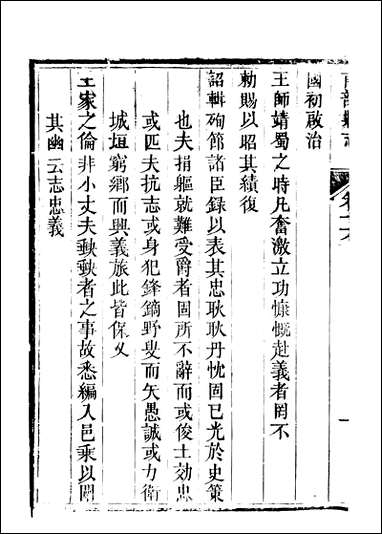 國初啟治
王師靖蜀之時凡奮激立功慷慨赴義者罔不
勅賜以昭其績復
詔輯殉節諸臣錄以表其忠耿耿丹忱固已光於史策
也夫捐軀就難受爵者固所不辭而或俊士効忠
或匹夫抗志或身犯鋒鏑野叟而矢愚誠或力衛
城垣窮鄉而興義旅此皆保乂
王家之倫非小丈夫軟軟者之事故悉編入邑乘以闡
其幽云志忠義
一